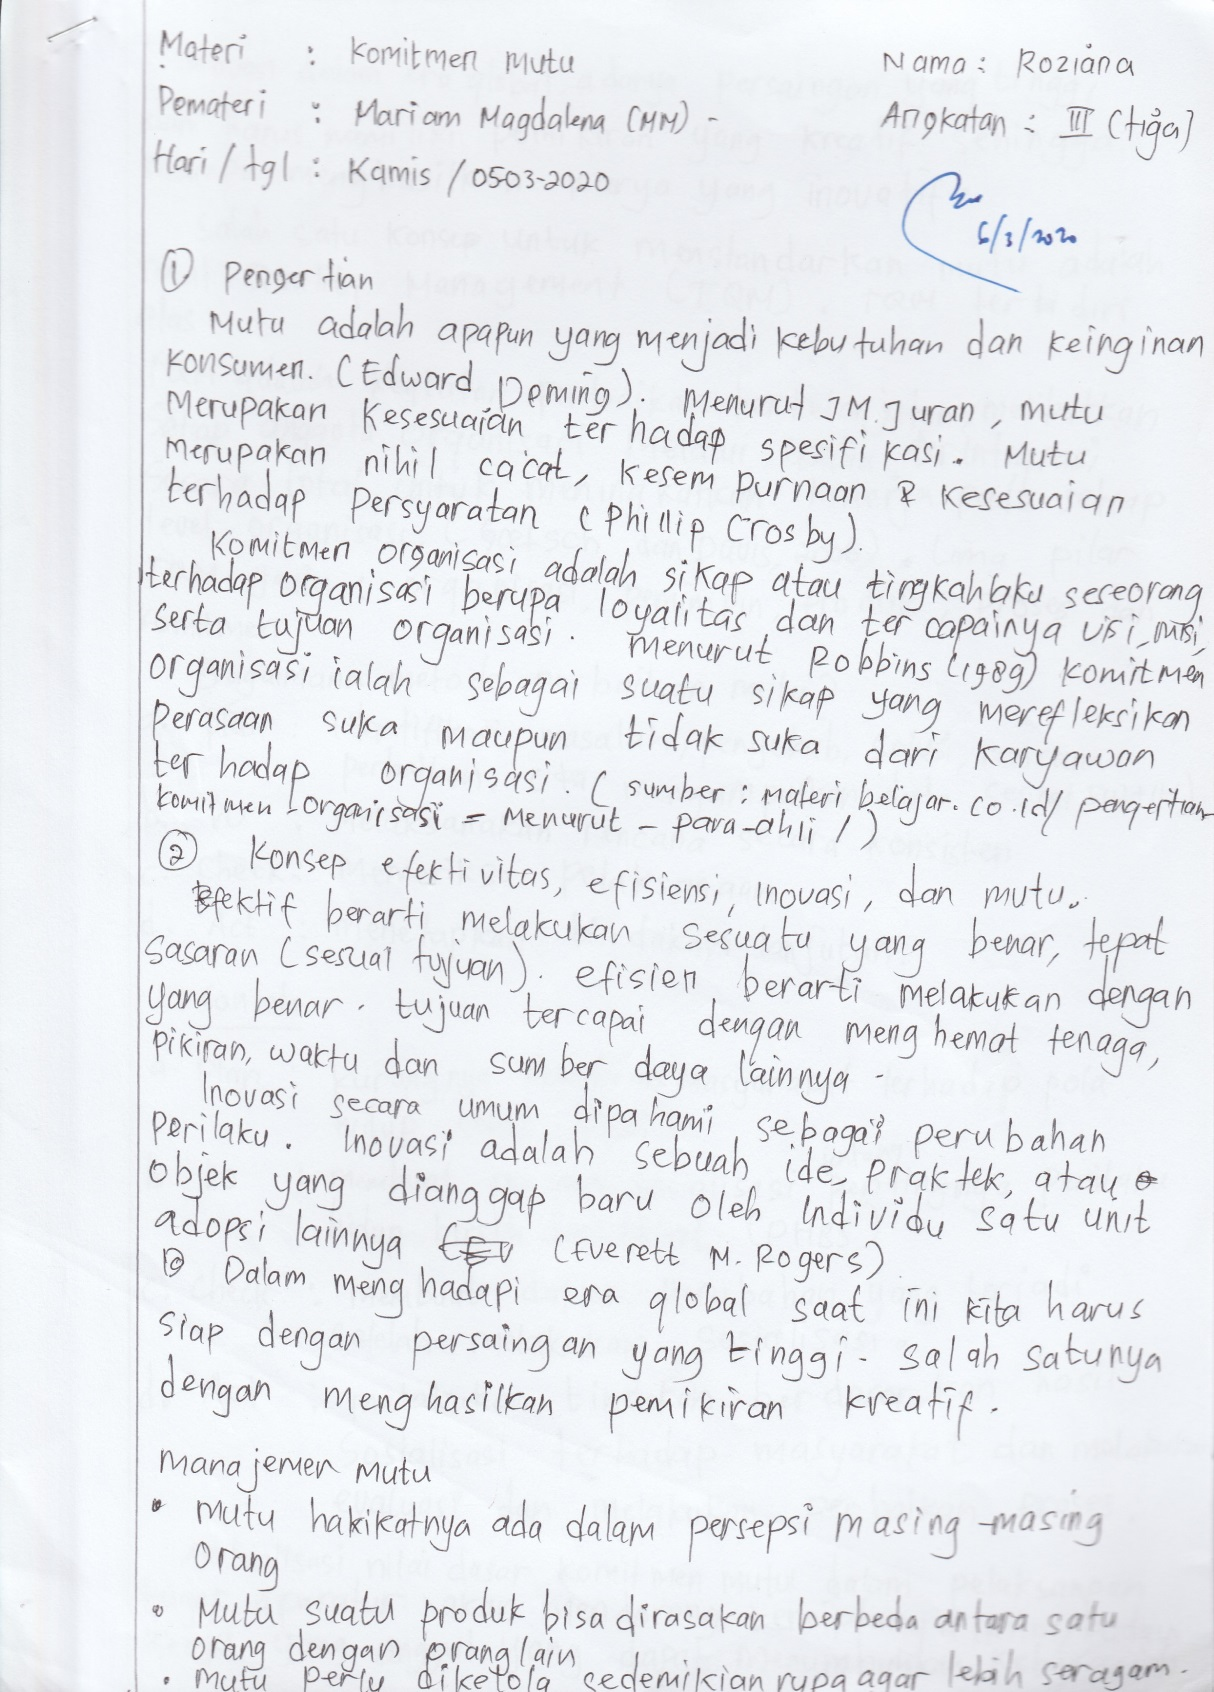 Materi : Komitmen Mutu
Nama : Roziana
Pemateri : Mariam Magdalena (MM) -
Angkatan : III (tiga)
Hari / tgl : Kamis / 0503-2020
6/3/2020
① Pengertian
Mutu adalah apapun yang menjadi kebutuhan dan keinginan
Konsumen. (Edward Deming). Menurut JM. Juran, mutu
Merupakan Kesesuaian terhadap spesifikasi. Mutu
merupakan nihil cacat, kesempurnaan & kesesuaian
terhadap Persyaratan (Phillip Crosby).
Komitmen organisasi adalah sikap atau tingkahlaku seseorang
terhadap organisasi berupa loyalitas dan tercapainya visi, misi,
serta tujuan organisasi. Menurut Robbins (1989) komitmen
organisasi ialah sebagai suatu sikap yang merefleksikan
perasaan suka maupun tidak suka dari karyawan
terhadap organisasi. (sumber : materi belajar.co.id/pengertian
komitmen-organisasi = Menurut - para-ahli /)
② Konsep efektivitas, efisiensi, Inovasi, dan mutu.
Efektif berarti melakukan sesuatu yang benar, tepat
sasaran (sesuai tujuan). efisien berarti melakukan dengan
yang benar. tujuan tercapai dengan menghemat tenaga,
pikiran, waktu dan sumber daya lainnya -
Inovasi secara umum dipahami sebagai perubahan
Perilaku. Inovasi adalah sebuah ide, praktek, atau
objek yang dianggap baru oleh Individu satu unit
adopsi lainnya (Everett M. Rogers)
Dalam menghadapi era global saat ini kita harus
siap dengan persaingan yang tinggi. salah satunya
dengan menghasilkan pemikiran kreatif.
manajemen mutu
• mutu hakikatnya ada dalam persepsi masing-masing
orang
• Mutu suatu produk bisa dirasakan berbeda antara satu
orang dengan orang lain
• mutu perlu dikelola sedemikian rupa agar lebih seragam.